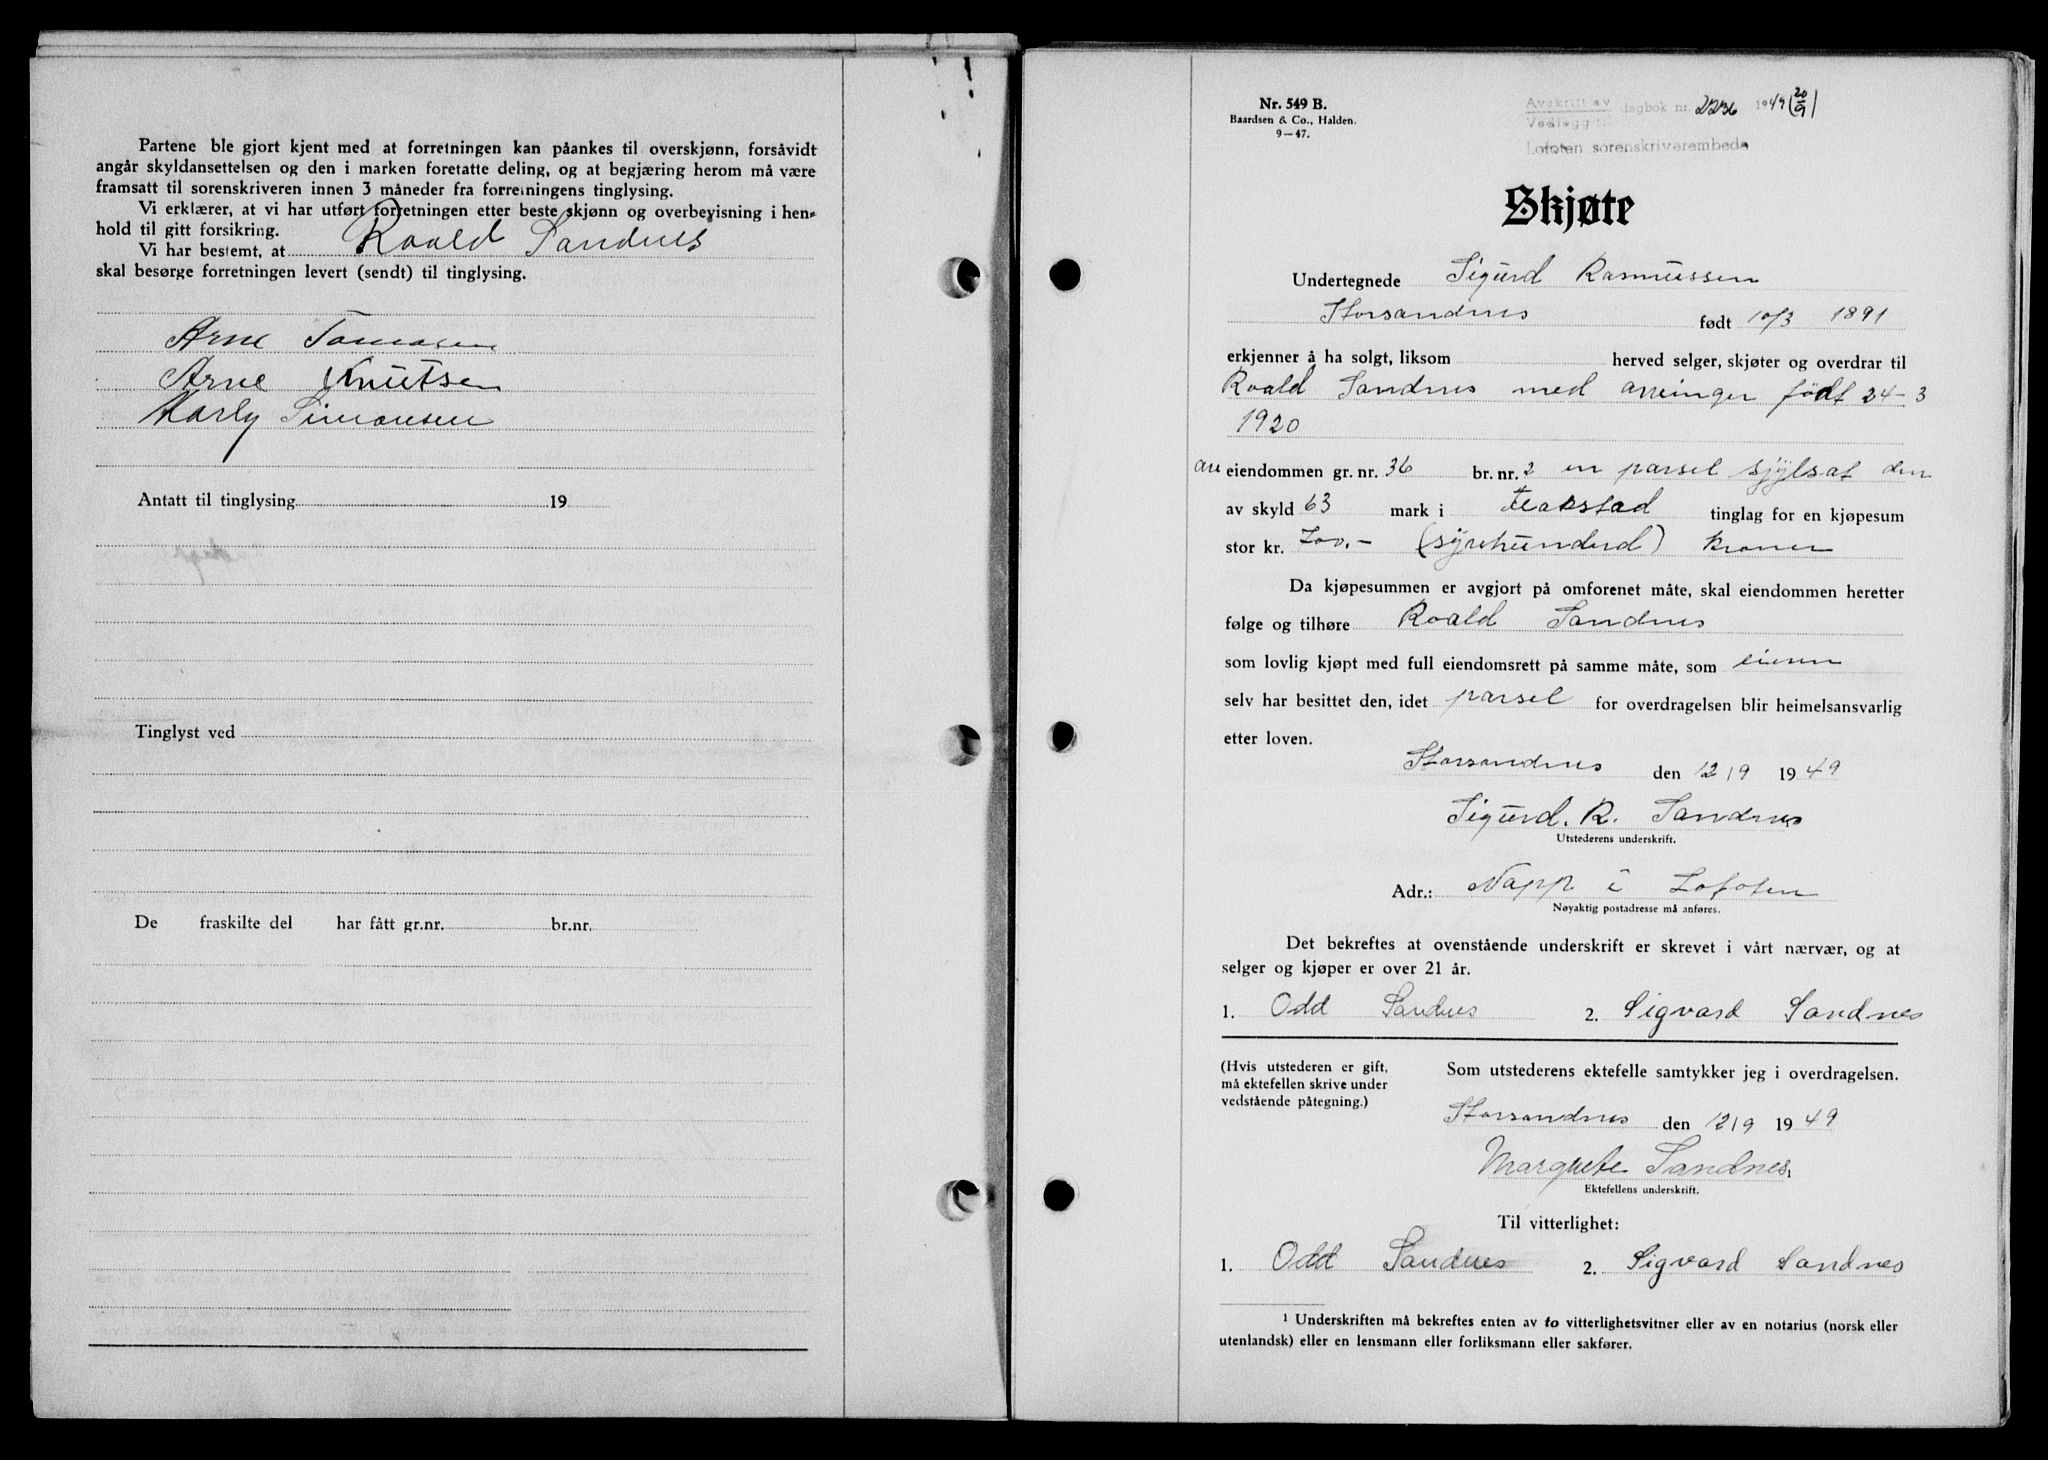 Partene ble gjort kjent med at forretningen kan påankes til overskjønn, forsåvidt
angår skyldansettelsen og den i marken foretatte deling, og at begjæring herom må være
framsatt til sorenskriveren innen 3 måneder fra forretningens tinglysing.
Vi erklærer, at vi har utført forretningen etter beste skjønn og overbevisning i hen-
hold til gitt forsikring.
Vi har bestemt, at Roald Sandnes
skal besørge forretningen levert (sendt) til tinglysing.
Arne Tomasen
Arne Knutsen
Karly Simonsen
Antatt til tinglysing 19
Tinglyst ved
De fraskilte del har fått gr.nr. br.nr.
Nr. 549 B.
Baardsen & Co., Halden.
9—47.
Avskrift av dagbok nr. 2236 1949 20/9
Vedlegg til
Lofoten sorenskriverembede
Skjøte
Undertegnede Sigurd Rasmussen
Storsandnes født 10/3 1891
erkjenner å ha solgt, liksom herved selger, skjøter og overdrar til
Roald Sandnes med arvinger født 24-3
1920
eiendommen gr. nr. 36 br. nr. 2 en parsel den
av skyld 63 mark i tinglag for en kjøpesum
stor kr. 700.- (syvehunderd) kroner
Da kjøpesummen er avgjort på omforenet måte, skal eiendommen heretter
følge og tilhøre Roald Sandnes
som lovlig kjøpt med full eiendomsrett på samme måte, som eieren
selv har besittet den, idet parsel for overdragelsen blir heimelsansvarlig
etter loven.
Storsandnes den 12/9 1949
Sigurd. R. Sandnes
Utstederens underskrift.
Adr.: Napp i Lofoten
Nøyaktig postadresse må anføres.
Det bekreftes at ovenstående underskrift er skrevet i vårt nærvær, og at
selger og kjøper er over 21 år.
1. Odd Sandnes 2. Sigvard Sandnes
(Hvis utstederen er gift,
må ektefellen skrive under
vedstående påtegning.)
Som utstederens ektefelle samtykker jeg i overdragelsen.
Storsandnes den 12/9 1949
Margrete Sandnes 1
Ektefellens underskrift.
Til vitterlighet:
1. Odd Sandnes 2. Sigvard Sandnes
1 Underskriften må bekreftes enten av to vitterlighetsvitner eller av en notarius (norsk eller
utenlandsk) eller en lensmann eller forliksmann eller sakfører.